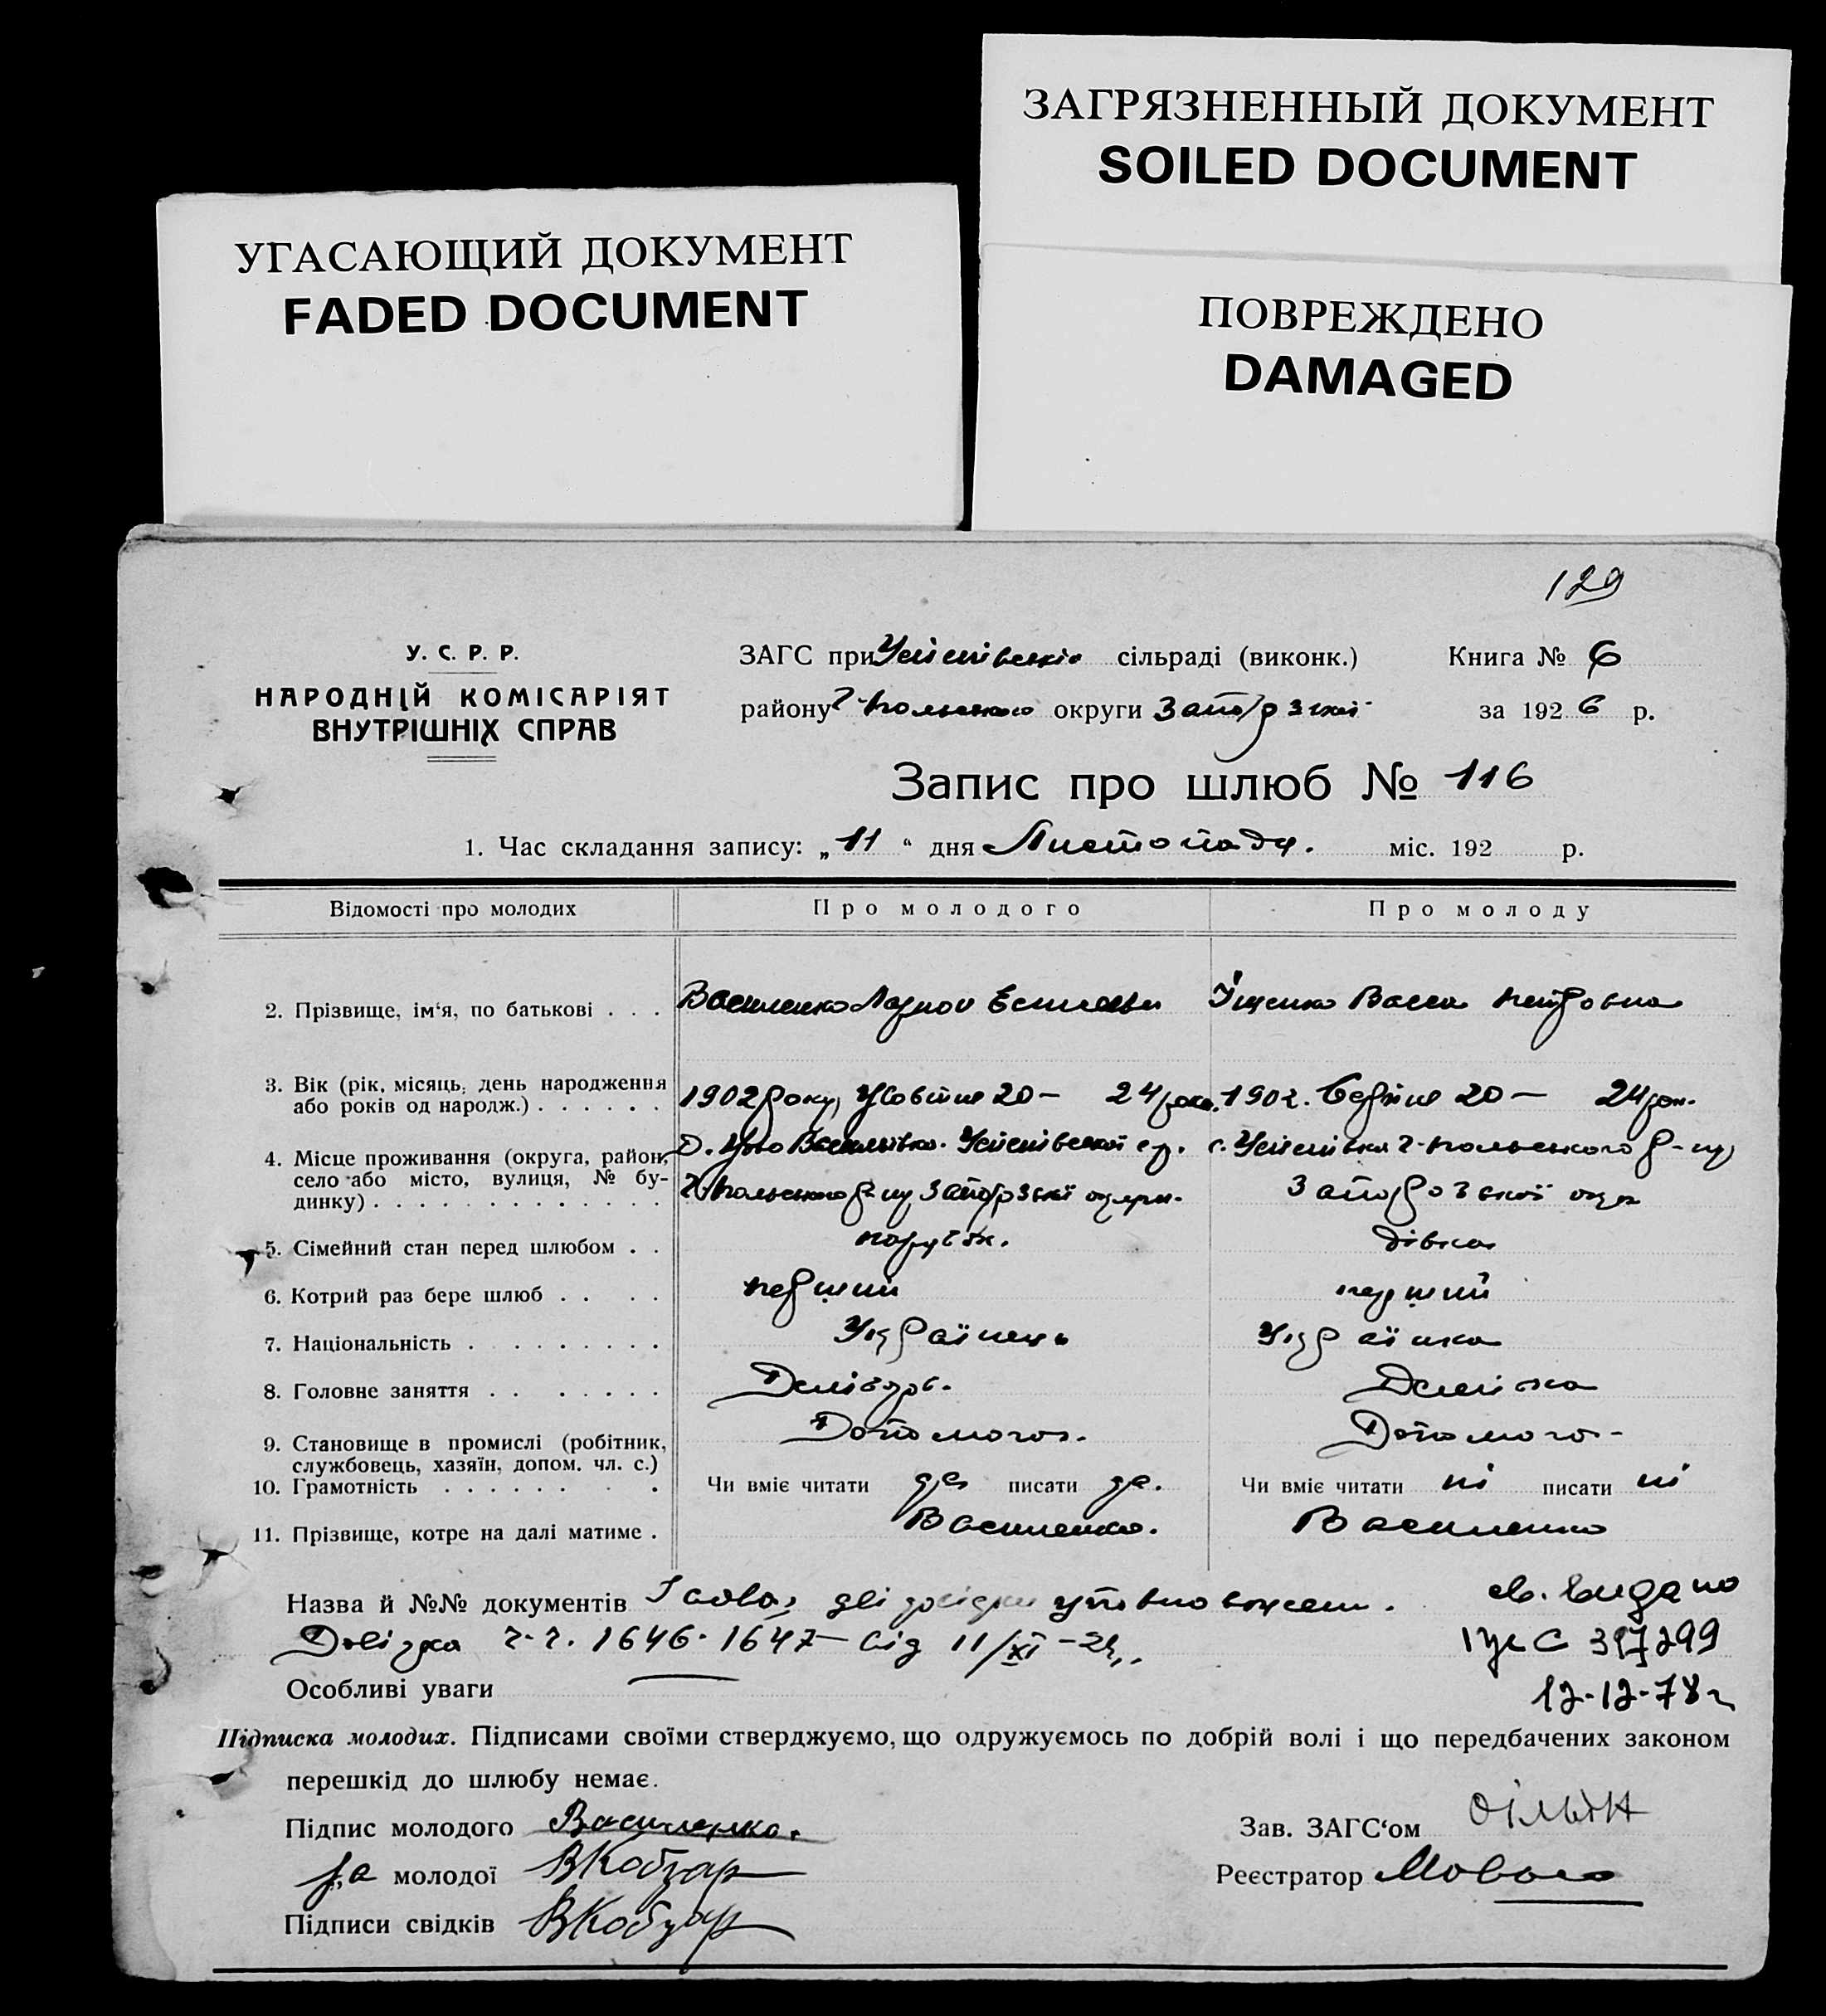 ЗАГРЯЗНЕННЫЙ ДОКУМЕНТ
SOILED DOCUMENT
УГАСАЮЩИЙ ДОКУМЕНТ
FADED DOCUMENT
ПОВРЕЖДЕНО
DAMAGED
129
У. С. Р. Р.
НАРОДНІЙ КОМІСАРІЯТ
ВНУТРІШНІХ СПРАВ
ЗАГС при Успенівській сільраді (виконк.) Книга № 6
району Г-Польського округи Запорізької за 1926 р.
Запис про шлюб № 116
1. Час складання запису: „11“ дня Листопада. міс. 192 р.
Відомості про молодих Про молодого Про молоду
2. Прізвище, ім'я, по батькові . . . Василенко Іщенко Васса Петровна
3. Вік (рік, місяць, день народження або років од народж.) . . . . . . 1902 року, Жовтня 20 — 24 роки. 1902. Серпня 20 — 24 рок.
4. Місце проживання (округа, район, село або місто, вулиця, № будинку) . . . . . . . . . . . . . Успенівської с/р. Г-Польського р-ну Запорізької округи. с. Успенівка Г-Польського р-ну Запорозської окр
5. Сімейний стан перед шлюбом . . парубок. дівка
6. Котрий раз бере шлюб . . . . перший перший
7. Національність . . . . . . . . . Українець Українка
8. Головне заняття . . . . . . . Хлібороб.
9. Становище в промислі (робітник, службовець, хазяїн, допом. чл. с.) Допомога. Допомога-
10. Грамотність . . . . . . . . Чи вміє читати да писати да. Чи вміє читати ні писати ні
11. Прізвище, котре на далі матиме . Василенко. Василенко
Назва й №№ документів дві довідки св. видано
Довідка 1646. 1647 — від 11/XI — 397299
12-12-78г
Особливі уваги —
Підписка молодих. Підписами своїми стверджуємо, що одружуємось по добрій волі і що передбачених законом
перешкід до шлюбу немає.
Підпис молодого Василенко. Зав. ЗАГС'ом
за молодої ВКобзар Реєстратор
Підписи свідків ВКобзар